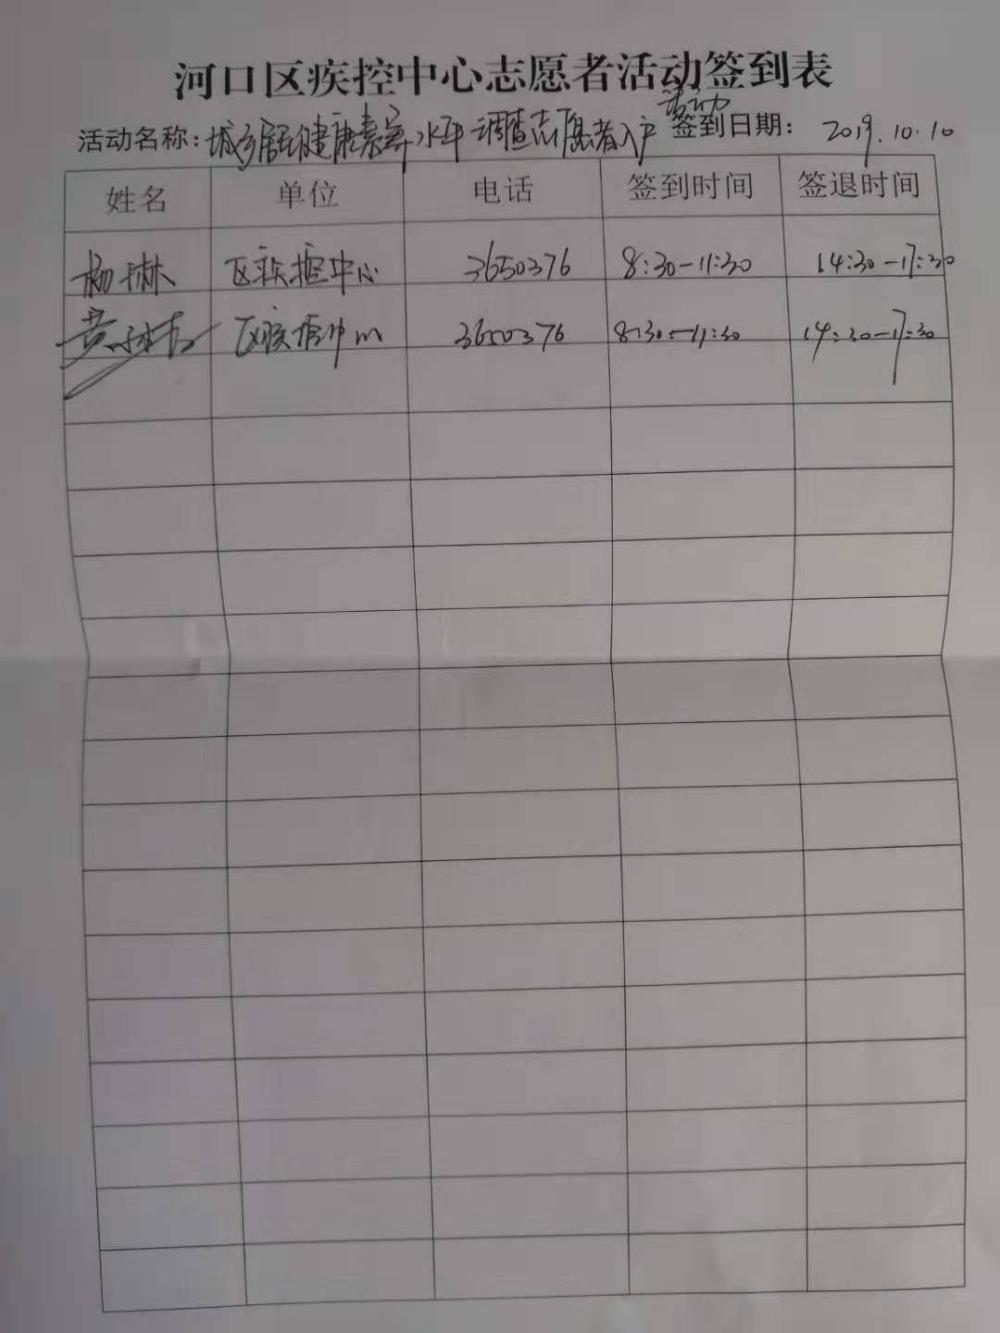 河口区疾控中心志愿者活动签到表
活动名称: 城乡居民健康素养水平调查志愿者入户活动 签到日期: 2019.10.10
姓名 单位 电话 签到时间 签退时间
杨琳 区疾控中心 3650376 8:30-11:30 14:30-17:30
黄 区疾控中心 3650376 8:30-11:30 14:30-17:30